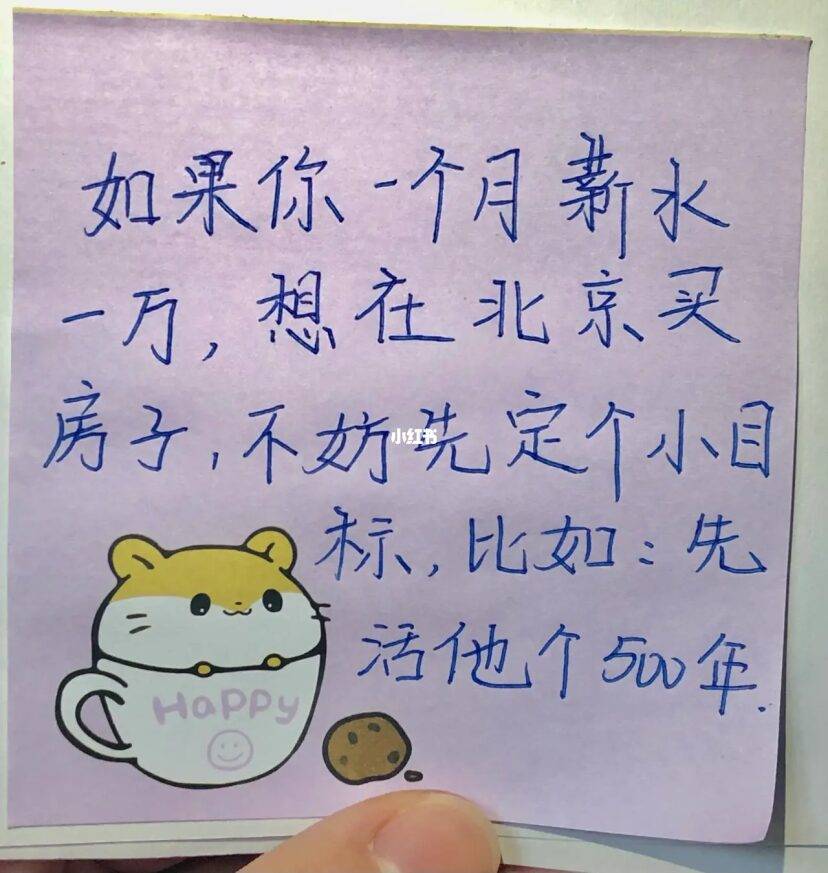 如果你一个月薪水
一万，想在北京买
房子，不妨先定个小目
标，比如：先
活他个500年.
Happy
小红书